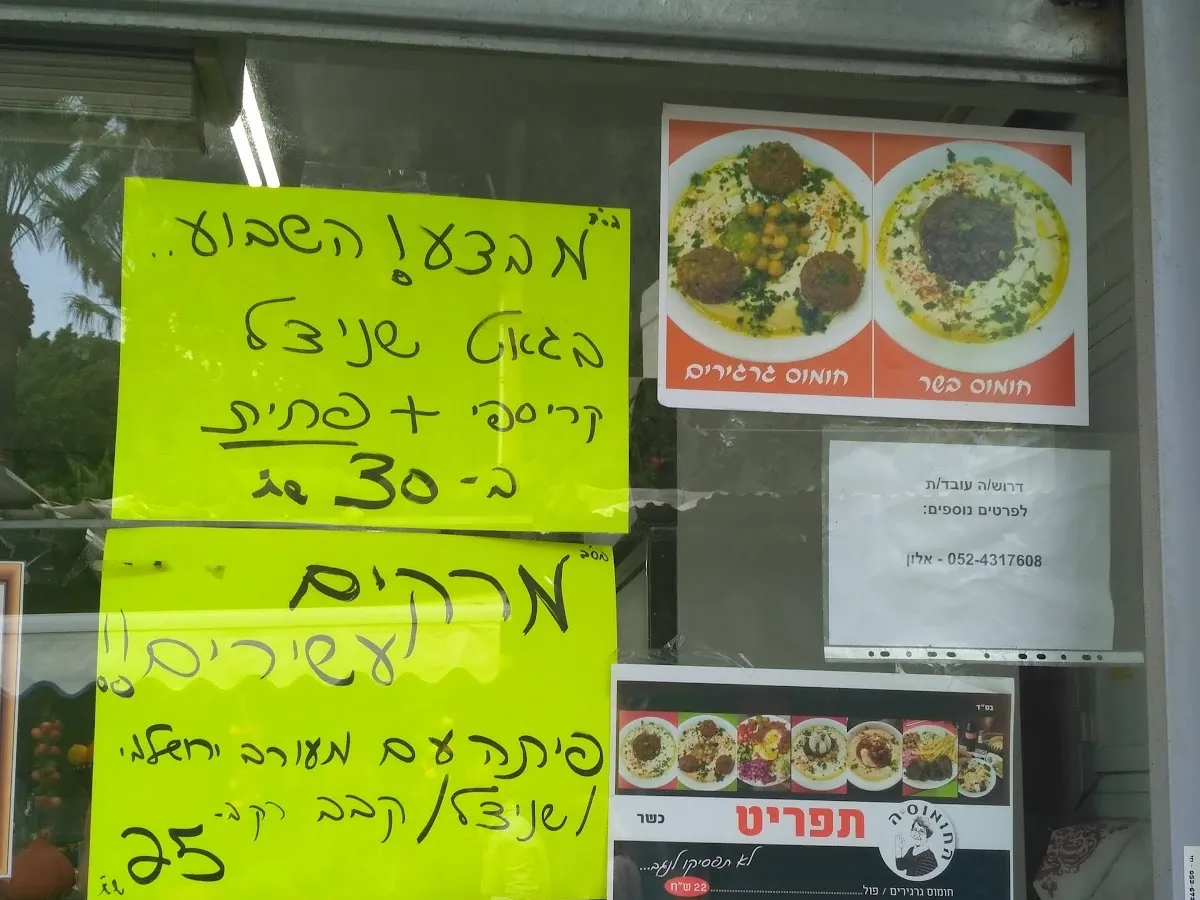 בס"ד
מבצע! השבוע..
בגאט שניצל
קריספי + פחית
ב- 30 ש"ח
בס"ד
מרקים
עשירים!!
פיתה עם מעורב ירושלמי
/שניצל/ קבב רק ב-
25 ש"ח
חומוס גרגירים
חומוס בשר
דרוש/ה עובד/ת
לפרטים נוספים:
052-4317608 - אלון
בס"ד
החומוסיה
תפריט
כשר
לא תפסיקו לנגב...
חומוס גרגירים / פול 22 ש"ח